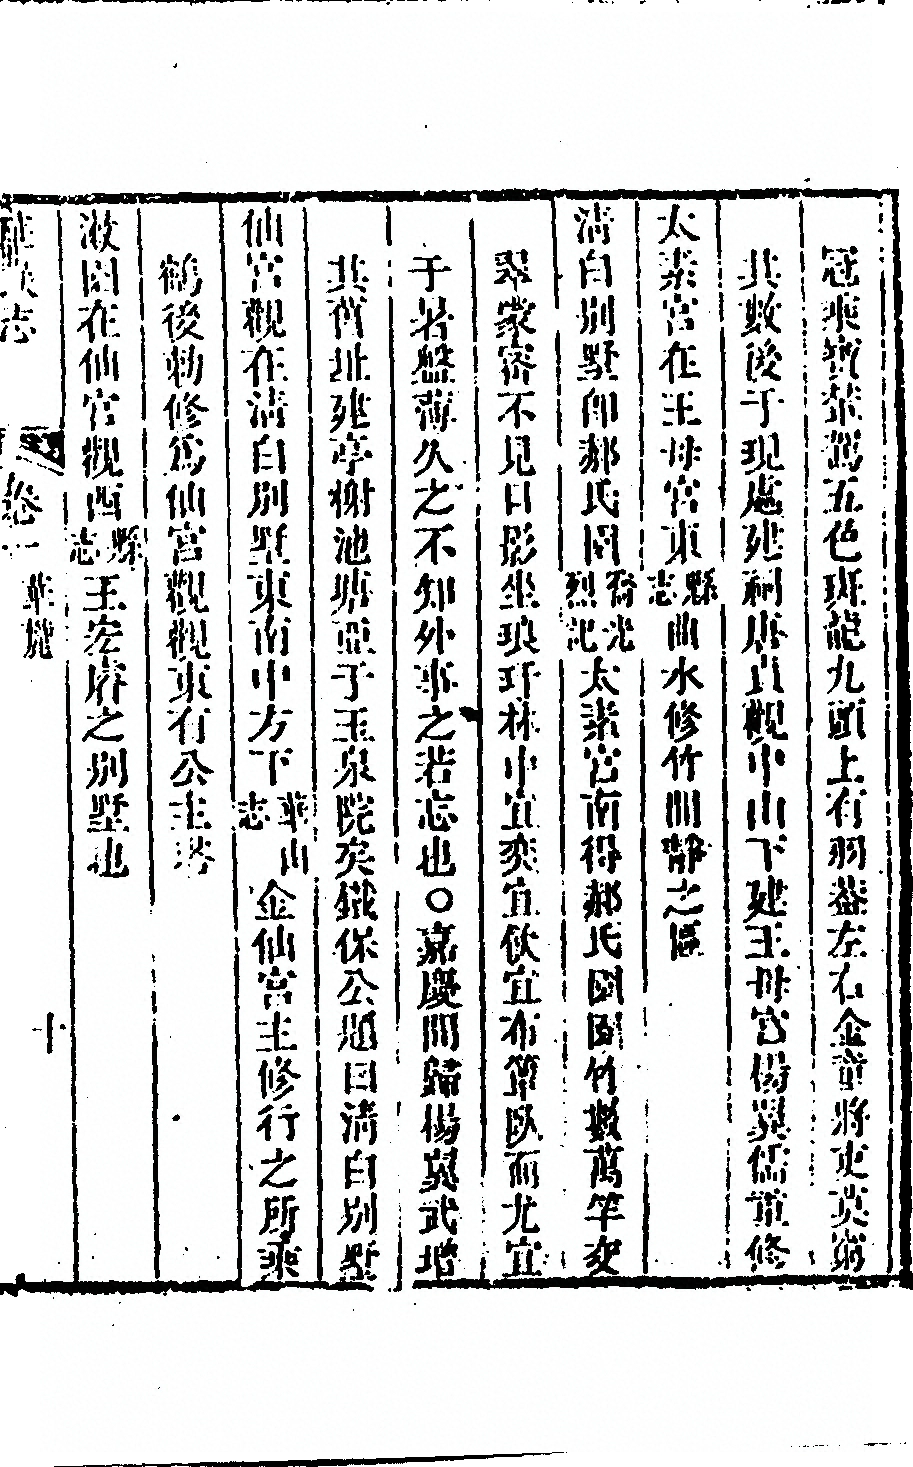 冠乘寶葉鸞五色斑龍九頭上有羽葢左右金童將吏莫窮
其數後于現處建祠唐貞觀中山下建王母宮楊巽儒重修
太素宮在王母宮東縣志曲水修竹閒靜之區
清白别墅卽郝氏園喬光烈記太素宮南得郝氏園園竹數萬竿交
翠蒙密不見日影坐琅玕林中宜奕宜飲宜布簟臥而尤宜
于暑盤薄久之不知外事之若忘也○嘉慶間歸楊巽武増
其舊址建亭榭池塘亞于玉泉院矣鐵保公題曰清白别墅
仙宮觀在清白别墅東南中方下華山志金仙宮主修行之所乘
鶴後勅修爲仙宮觀觀東有公主塔
漵園在仙宮觀西縣志王宏嶈之别墅也
華嶽志 卷一 華麓 十